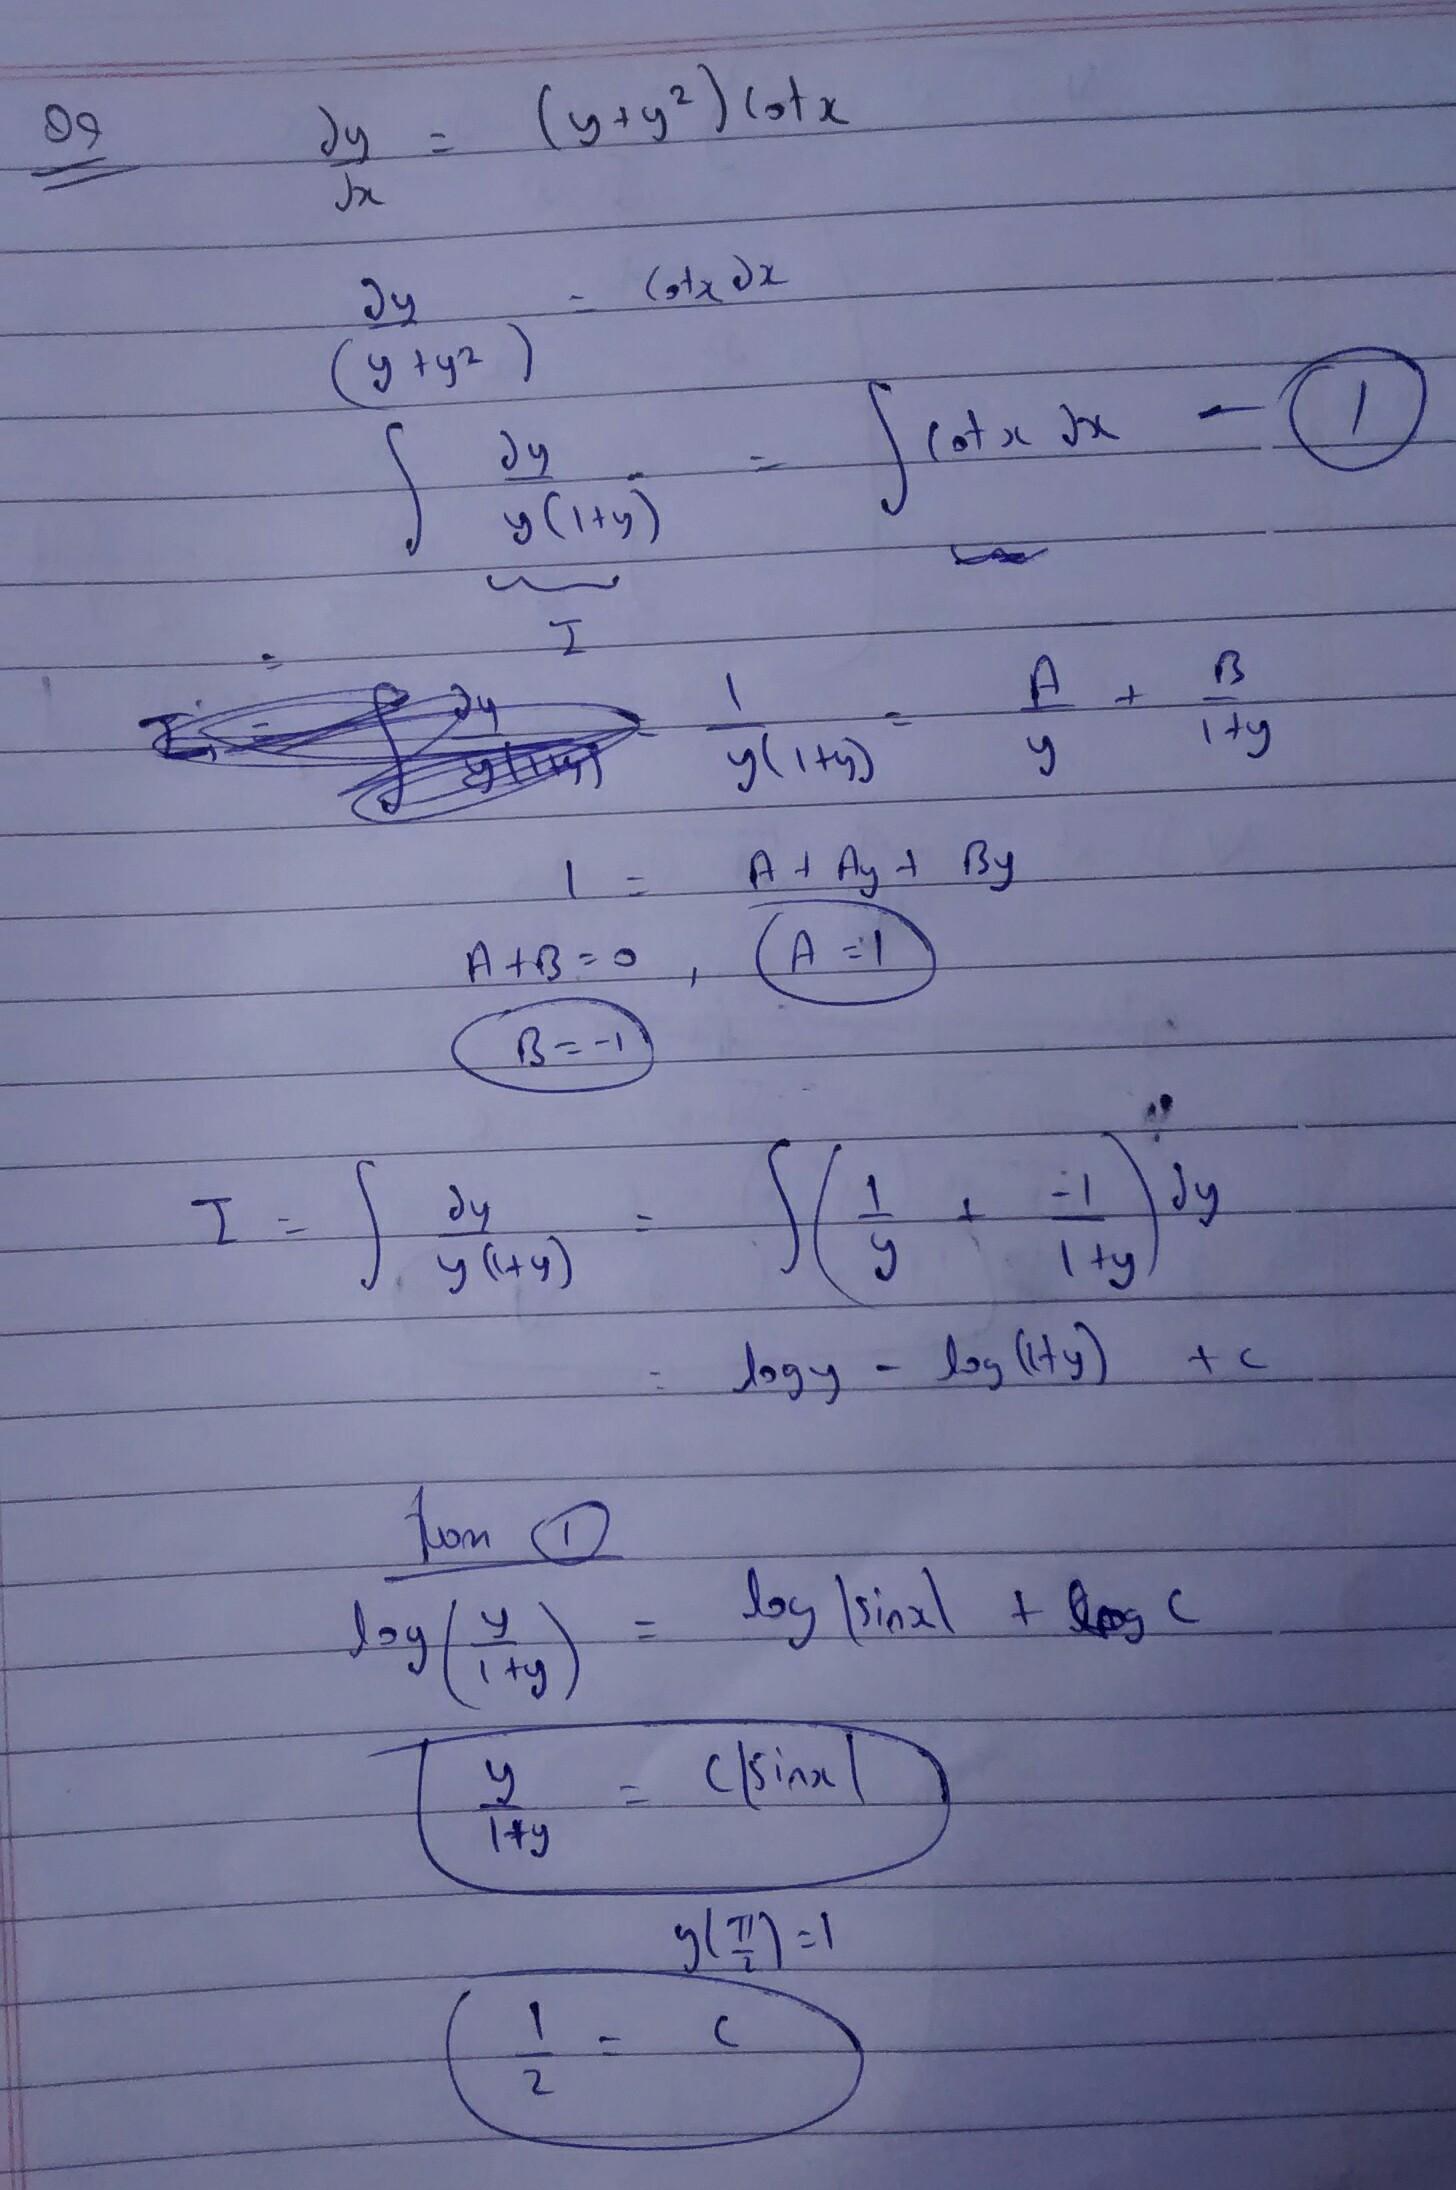 Q9 dy/dx = (y+y²) Cotx
dy/(y+y²) = Cotx dx
∫ dy/y(1+y) = ∫ Cotx dx - 1
I
1/y(1+y) = A/y + B/1+y
1 = A + Ay + By
A+B=0 , A=1
B=-1
I = ∫ dy/y(1+y) = ∫ (1/y + -1/1+y) dy
= logy - log(1+y) + c
from 1
log(y/1+y) = log|sinx| + log C
y/1+y = C|sinx|
y(π/2)=1
1/2 = C